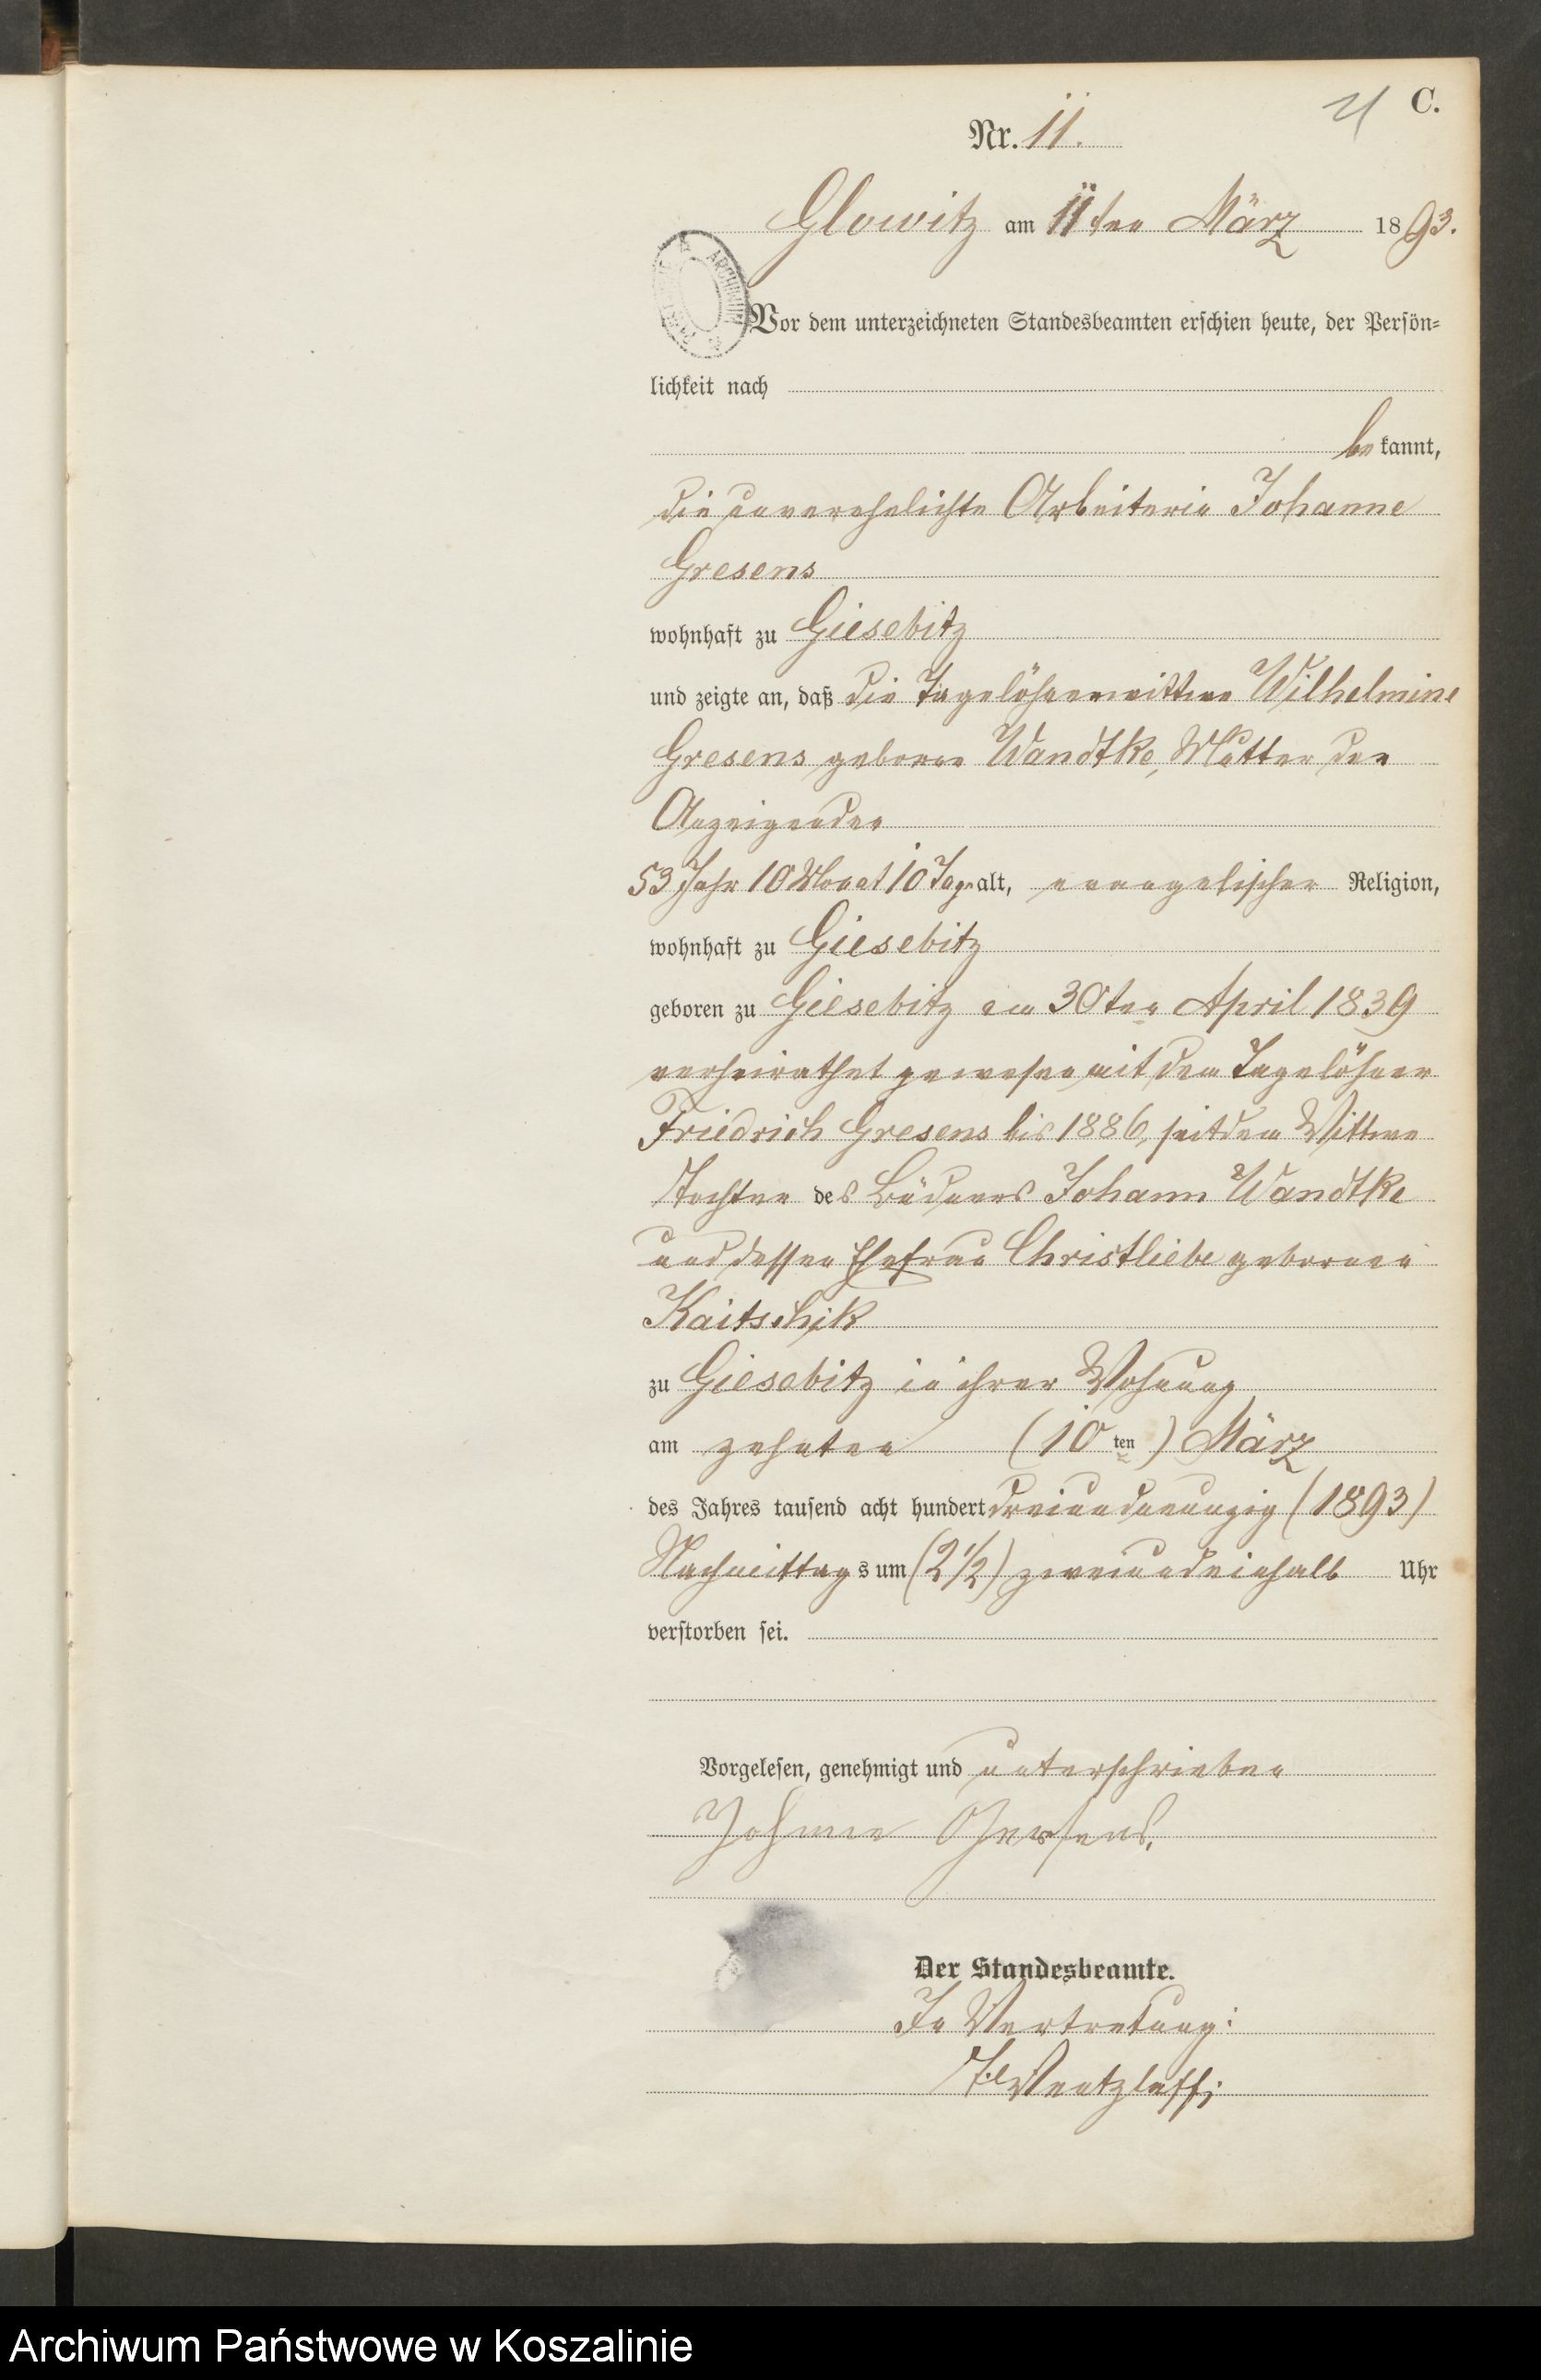 21 C.
Nr. 11.
Glowitz am 11ten März 1893.
Vor dem unterzeichneten Standesbeamten erschien heute, der Persön-
lichkeit nach
bekannt,
die unverehelichte Arbeiterin Johanne
Gresens
wohnhaft zu Giesebitz
und zeigte an, daß die Tagelöhnerwittwe Wilhelmine
Gresens geborne Wandtke, Mutter der
Anzeigenden
53 Jahr 10 Monat 10 Tage alt, evangelischer Religion,
wohnhaft zu Giesebitz
geboren zu Giesebitz am 30ten April 1839
verheirathet gewesen mit dem Tagelöhner
Friedrich Gresens bis 1886, seitdem Wittwe
Tochter des Büdners Johann Wandtke
und dessen Ehefrau Christliebe geborene
Kaitschik
zu Giesebitz in ihrer Wohnung
am zehnten (10ten) März
des Jahres tausend acht hundert dreiundneunzig (1893)
Nachmittags um (2 1/2) zweiundeinhalb Uhr
verstorben sei.
Vorgelesen, genehmigt und unterschrieben
Johanne Gresens.
Der Standesbeamte.
In Vertretung:
Wentzlaff
ARCHIWUM
Archiwum Państwowe w Koszalinie